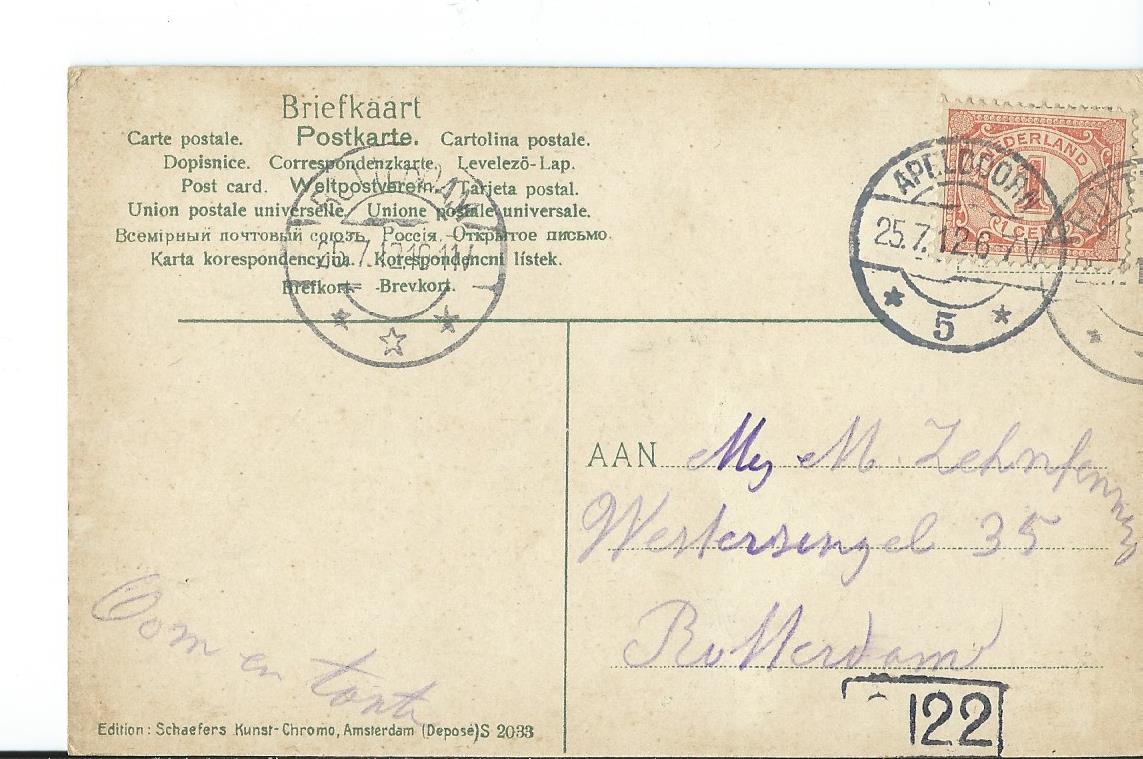 Briefkaart
Carte postale. Postkarte. Cartolina postale.
Dopisnice. Correspondenzkarte. Levelező-Lap.
Post card. Weltpostverein. Tarjeta postal.
Union postale universelle. Unione postale universale.
Всемірный почтовый союзъ. Россія. Открытое письмо.
Karta korespondencyjna. Korespondencni lístek.
Brefkort. Brevkort.
NEDERLAND
1
1 CENT
APELDOORN
25.7.12.6-7V
5
AAN Mej M. Zehnpfennig
Westersingel 35
Rotterdam
Oom en tante
122
Edition: Schaefers Kunst-Chromo, Amsterdam (Deposé) S 2033